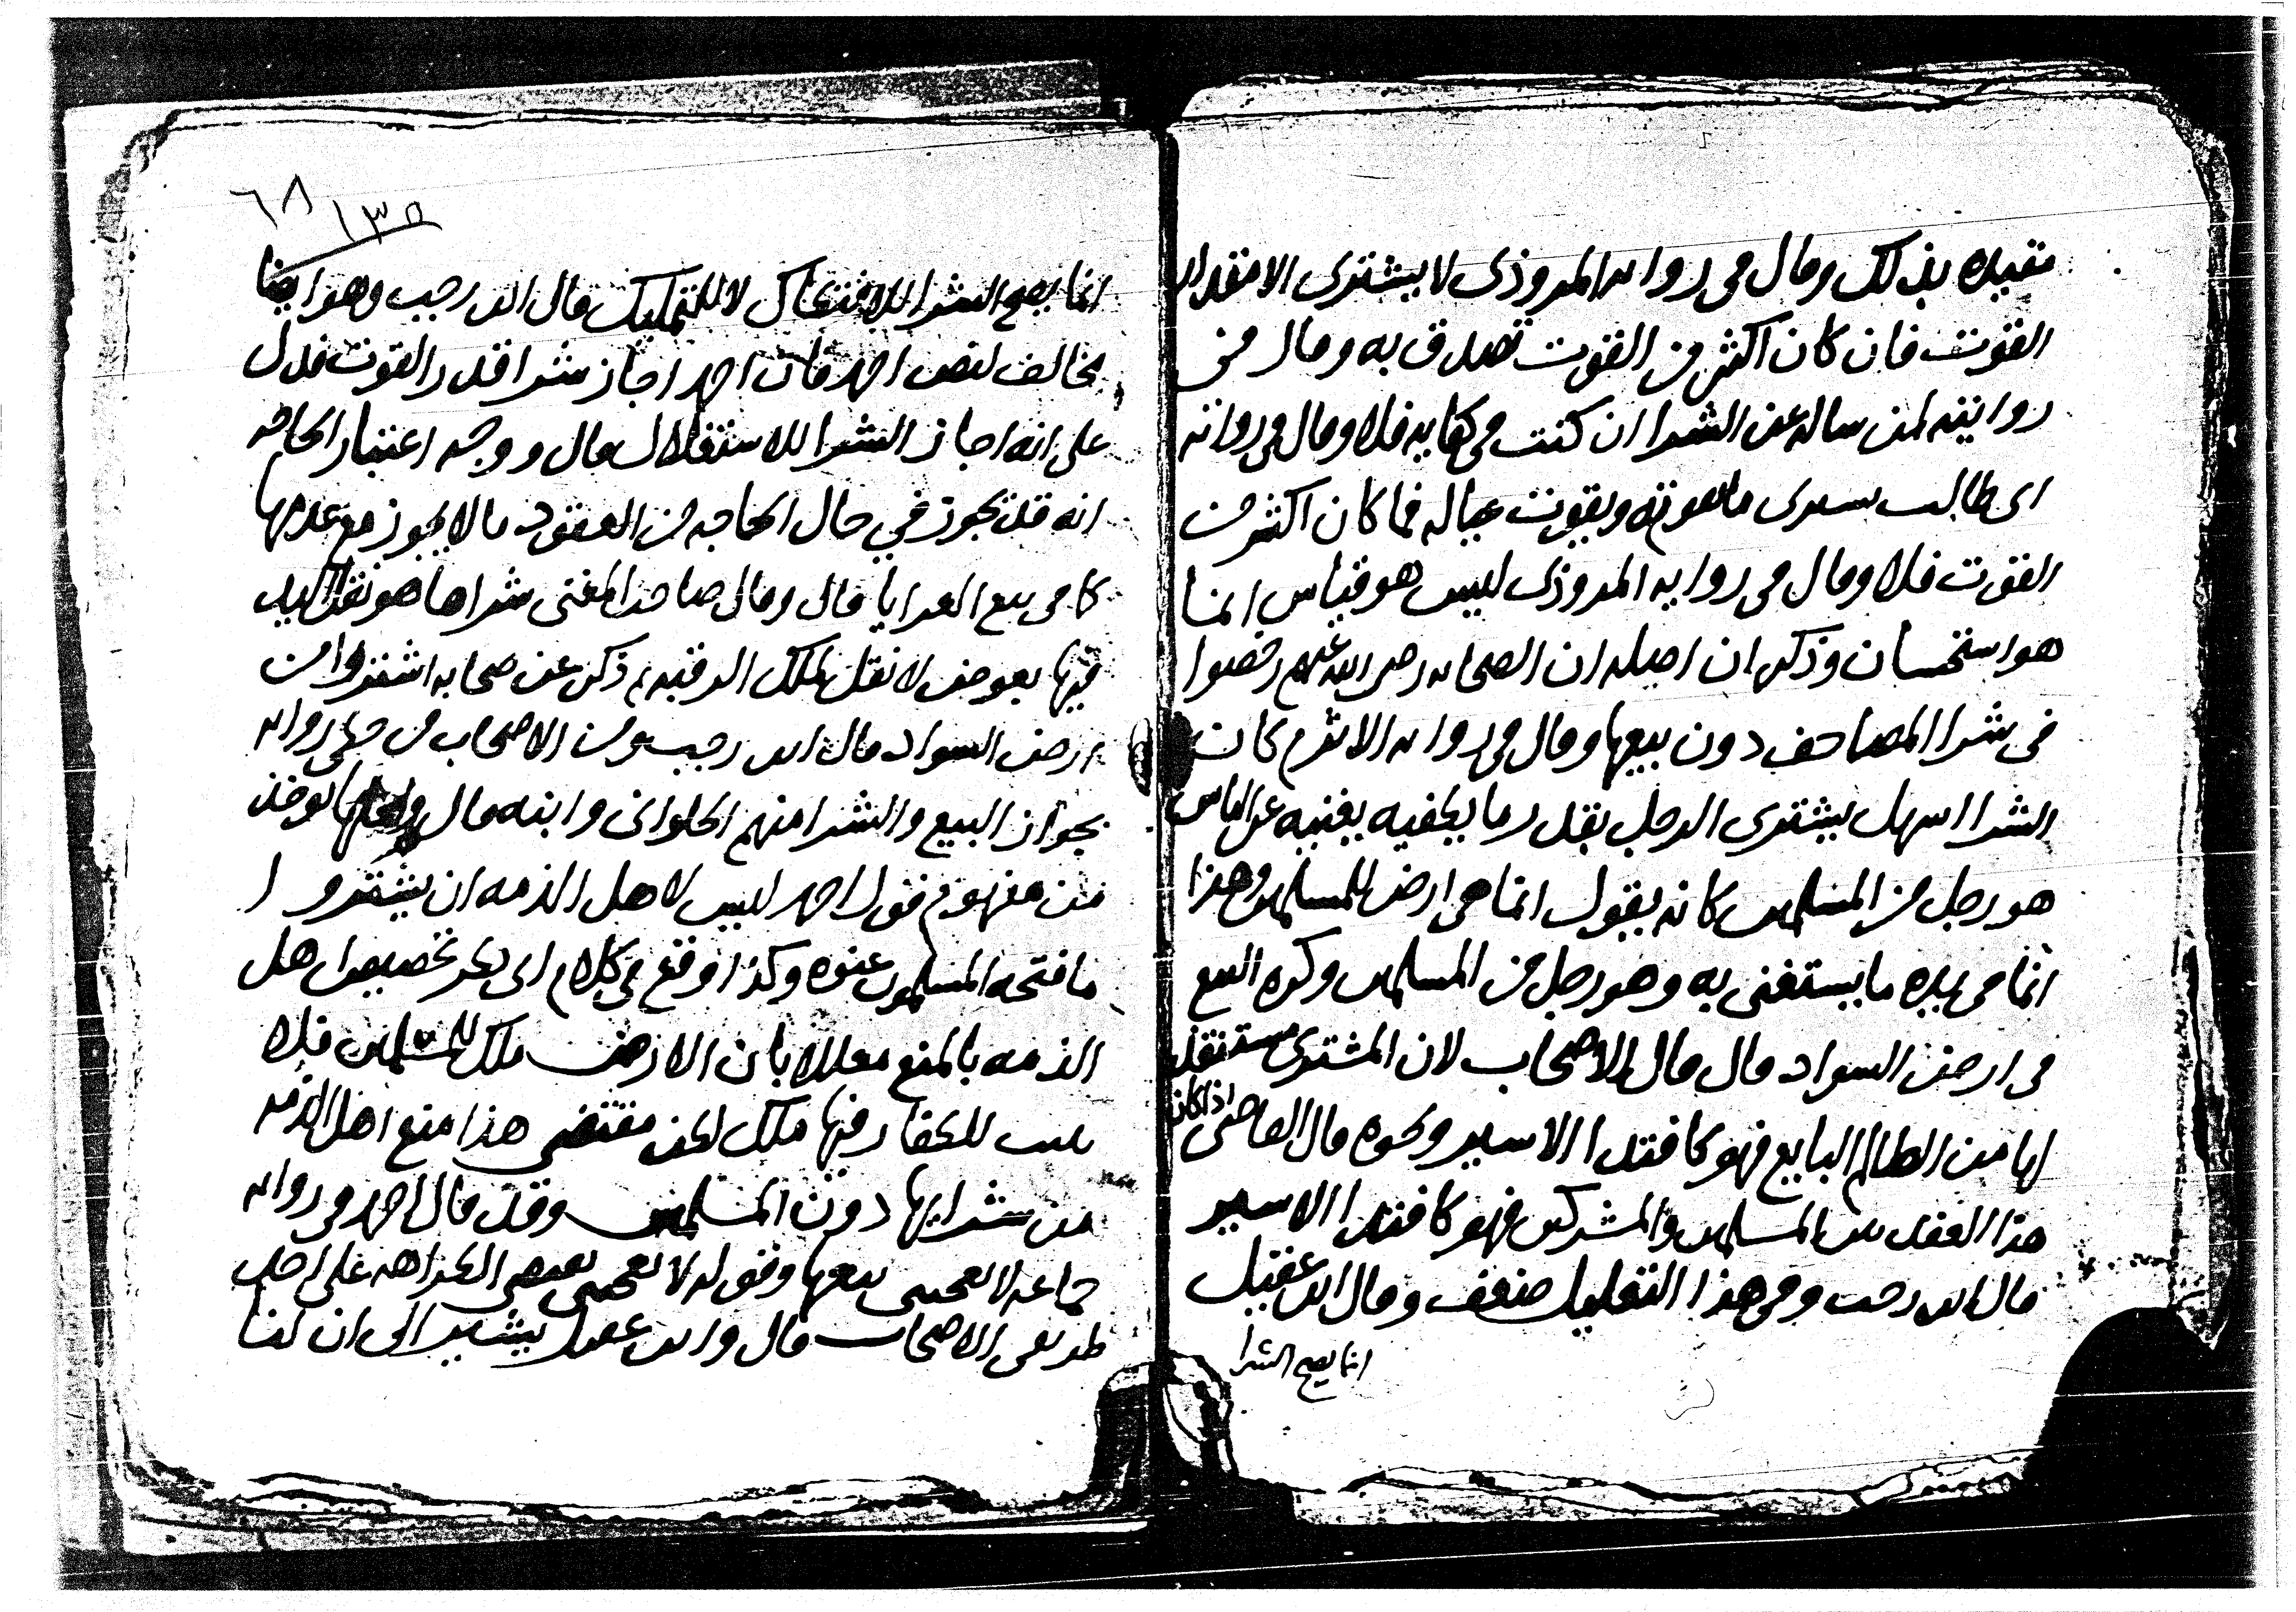 مقيده بذلك وقال في رواية المروذي لا يشتري الا مقدار
القوت فان كان اكثر من القوت تصدق به وقال في
روايته لمن ساله عن الشرا ان كنت في كفاية فلا وقال في رواية
ابي طالب يشتري ما يقوته ويقوت عياله فما كان اكثر من
القوت فلا وقال في رواية المروذي ليس هو قياس انما
هو استحسان وذكر ان اصله ان الصحابة رضي الله عنهم رخصوا
في شرا المصاحف دون بيعها وقال في رواية الاثرم كان
الشرا اسهل يشتري الرجل بقدر ما يكفيه يغنيه عن الناس
هو رجل من المسلمين كانه يقول انما هي ارض للمسلمين وهذا
انما في يده ما يستغني به وهو رجل من المسلمين وكره البيع
في ارض السواد قال قال الاصحاب لان المشتري مستنقذ
لها من الظالم البايع فهو كافتدا الاسير ونحوه قال القاضي اذا كان
هذا العقد بين المسلمين والمشركين فهو كافتدا الاسير
قال ابن رجب وفي هذا التعليل ضعف وقال ابن عقيل
انما يصح الشرا
٦٨
١٣٥
انما يصح الشرا للافتكاك لا للتمليك قال ابن رجب وهو ايضا
مخالف لنص احمد فان احمد اجاز شرا قدر القوت فدل
على انه اجاز الشرا للاستغلال قال ووجه اعتبار الحاجه
انه قد تجوز في حال الحاجه من العقود ما لا يجوز مع عدمها
كما في بيع العرايا قال وقال صاحب المغني شراها هو نقل اليد
فيها بعوض لا نقل لملك الرقبه ثم ذكر عن صحابه اشتروا من
ارض السواد قال ابن رجب ومن الاصحاب من حكى رواية
بجواز البيع والشرا منهم الحلواني وابنه قال ولعلها توخذ
من مفهوم قول احمد ليس لاهل الذمه ان يشتروا
ما فتحه المسلمون عنوه وكذا وقع في كلام ابي بكر تخصيص اهل
الذمه بالمنع معللا بان الارض ملك للمسلمين فلا
يثبت للكفار فيها ملك لكن مقتضى هذا منع اهل الذمه
من شرايها دون المسلمين وقد قال احمد في رواية
جماعه لا يعجبني بيعها وقوله لا يعجبني يقتضي الكراهه على احد
طريقي الاصحاب قال وابن عقيل يشير الى ان لنا